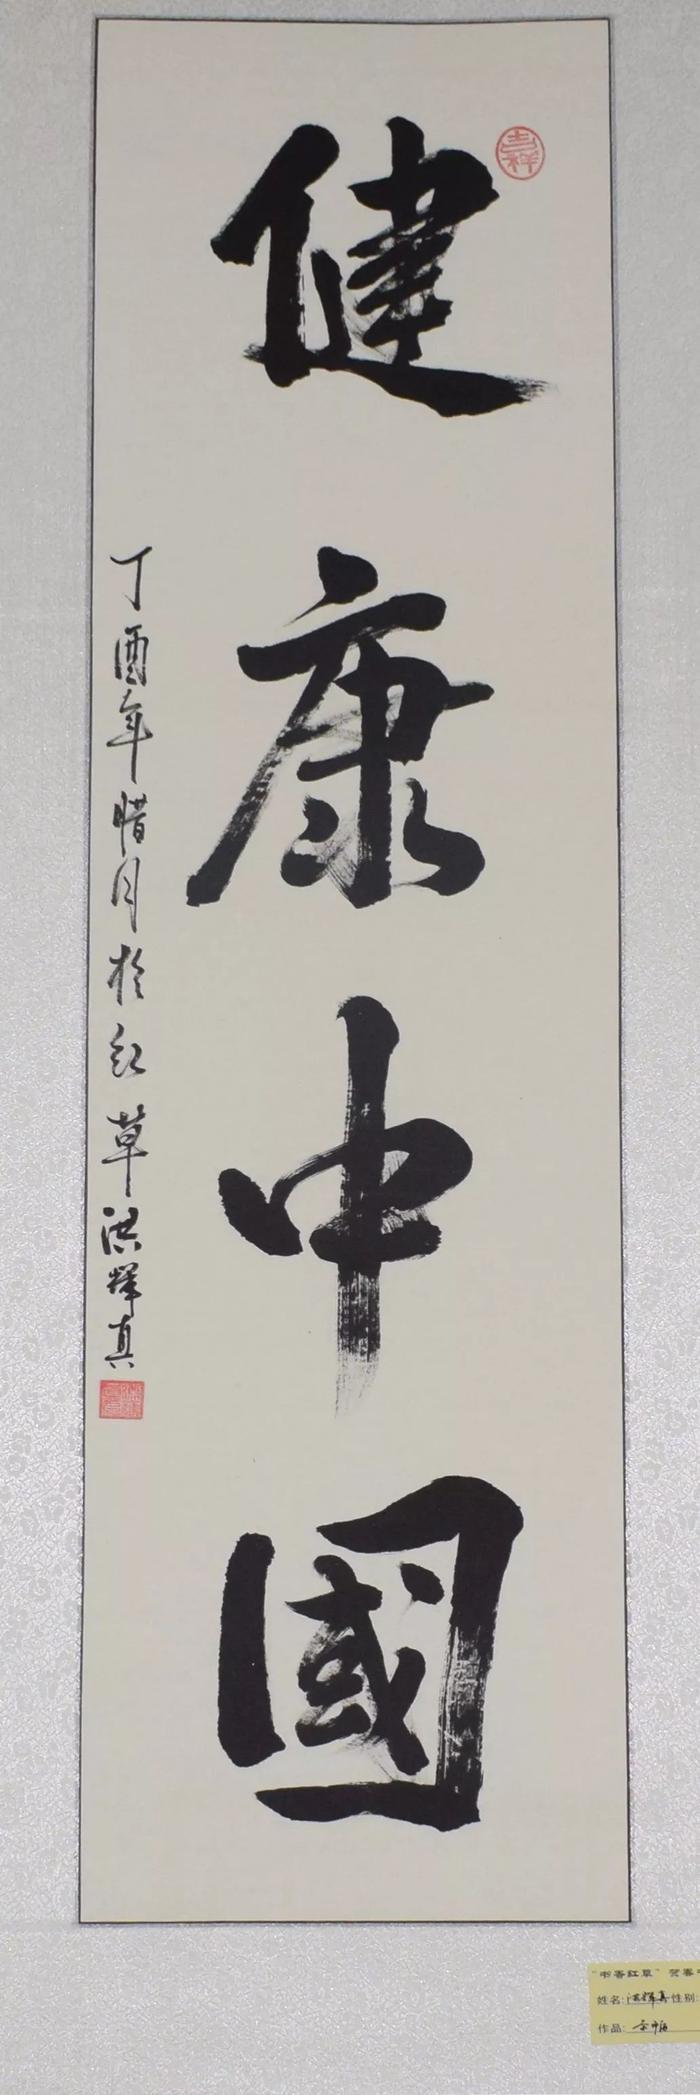 健康中國
吉祥
丁酉年腊月於红草洪辉真
"书香红草" 贺春
姓名: 洪辉真 性别:
作品: